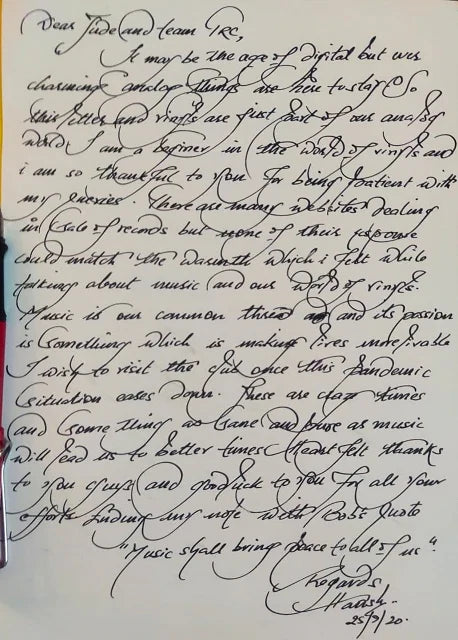 Dear Jude and team TRC,
It may be the age of digital but our
charming analog things are here to stay So
this letter and vinyls are just part of our analog
world. I am a beginer in the world of vinyls and
i am so thankful to you for being patient with
my queries. There are many websites dealing
in sale of records but none of their response
could match the warmth which i felt while
talking about music and our world of vinyls.
Music is our common thread and its passion
is something which is making lives more livable
I wish to visit the club once this pandemic
situation eases down. These are times
and some thing as sane and pure as music
will lead us to better times Heart felt thanks
to you guys and goodluck to you for all your
efforts Ending my note with Bob's Quote
"Music shall bring peace to all of us".
Regards
Harish.
25/9/20.